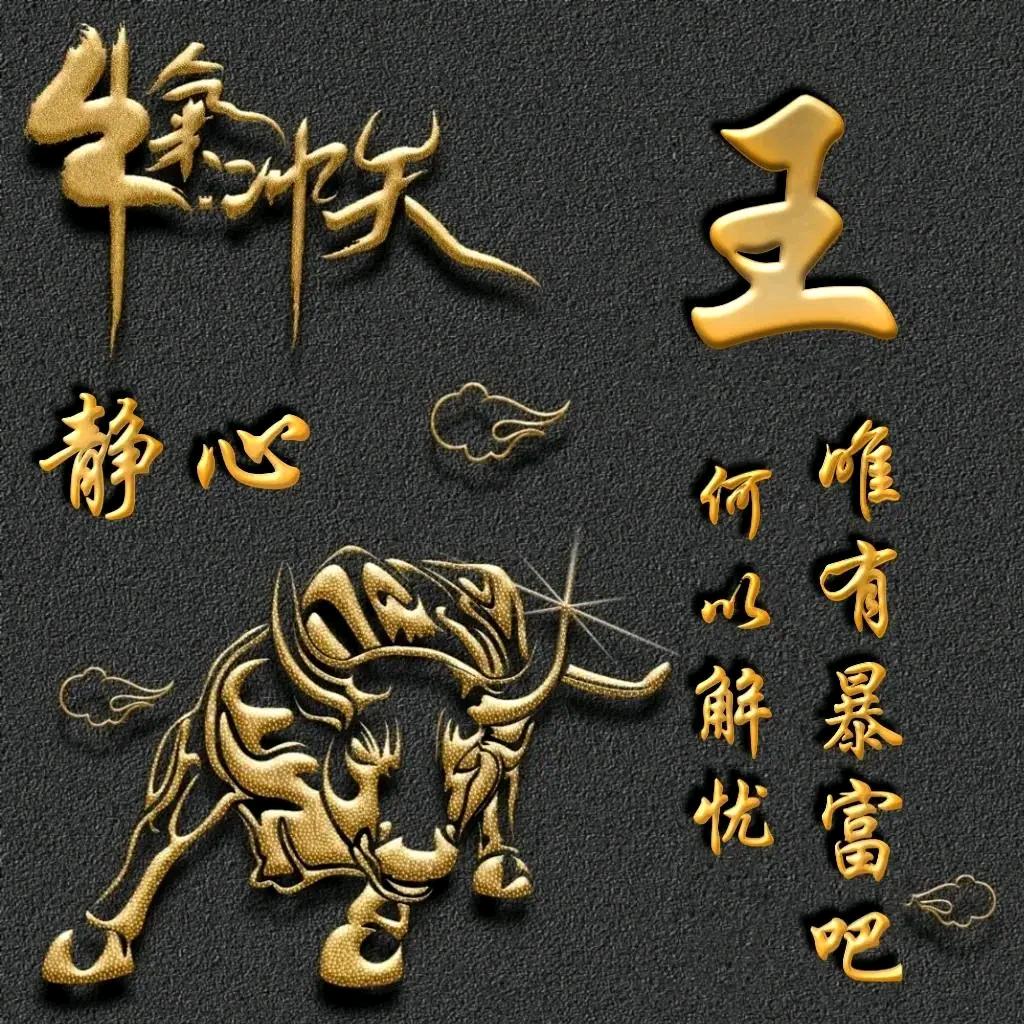 牛氣沖天
王
静心
何以解忧
唯有暴富吧